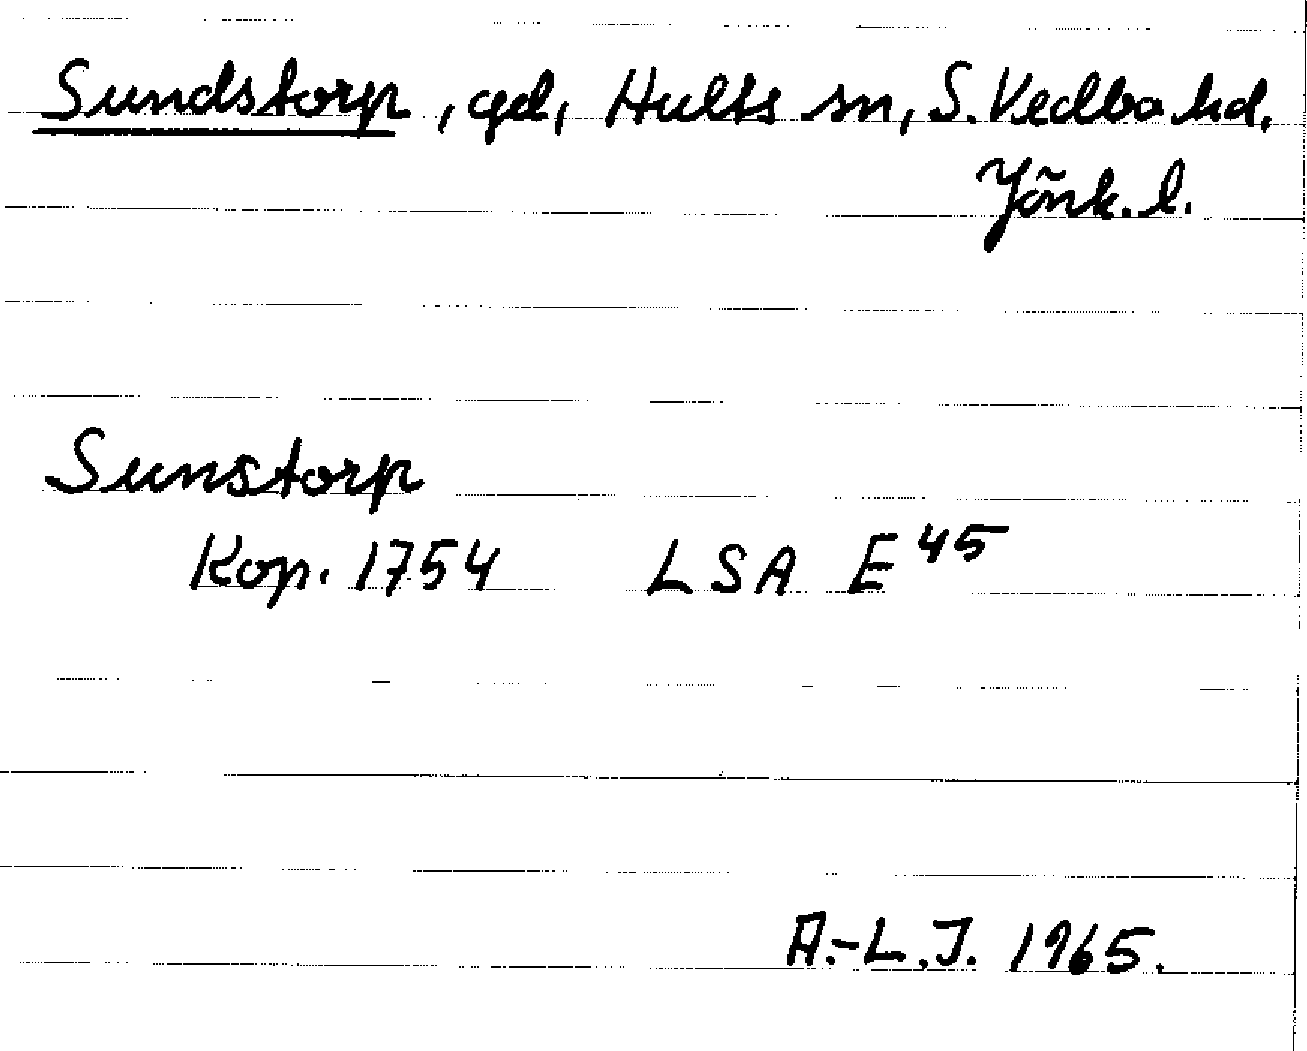 Sundstorp, gd, Hults sn, S. Vedbo hd.
Jönk. l.
Sunstorp
Kop. 1754 LSA E 45
A.-L.J. 1965.